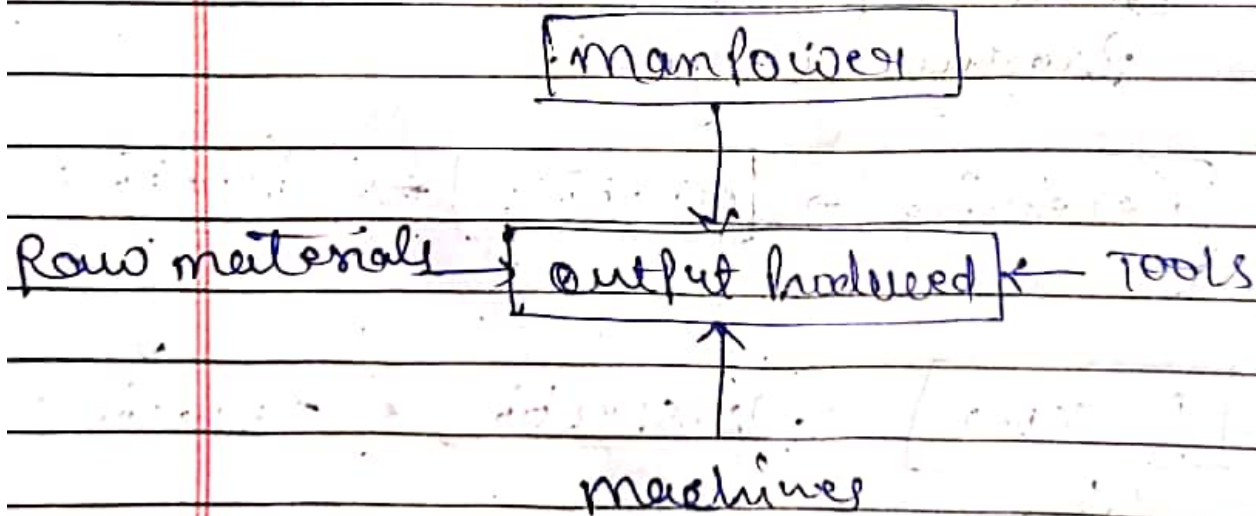 manpower
Raw materials output Produced TOOLS
machines